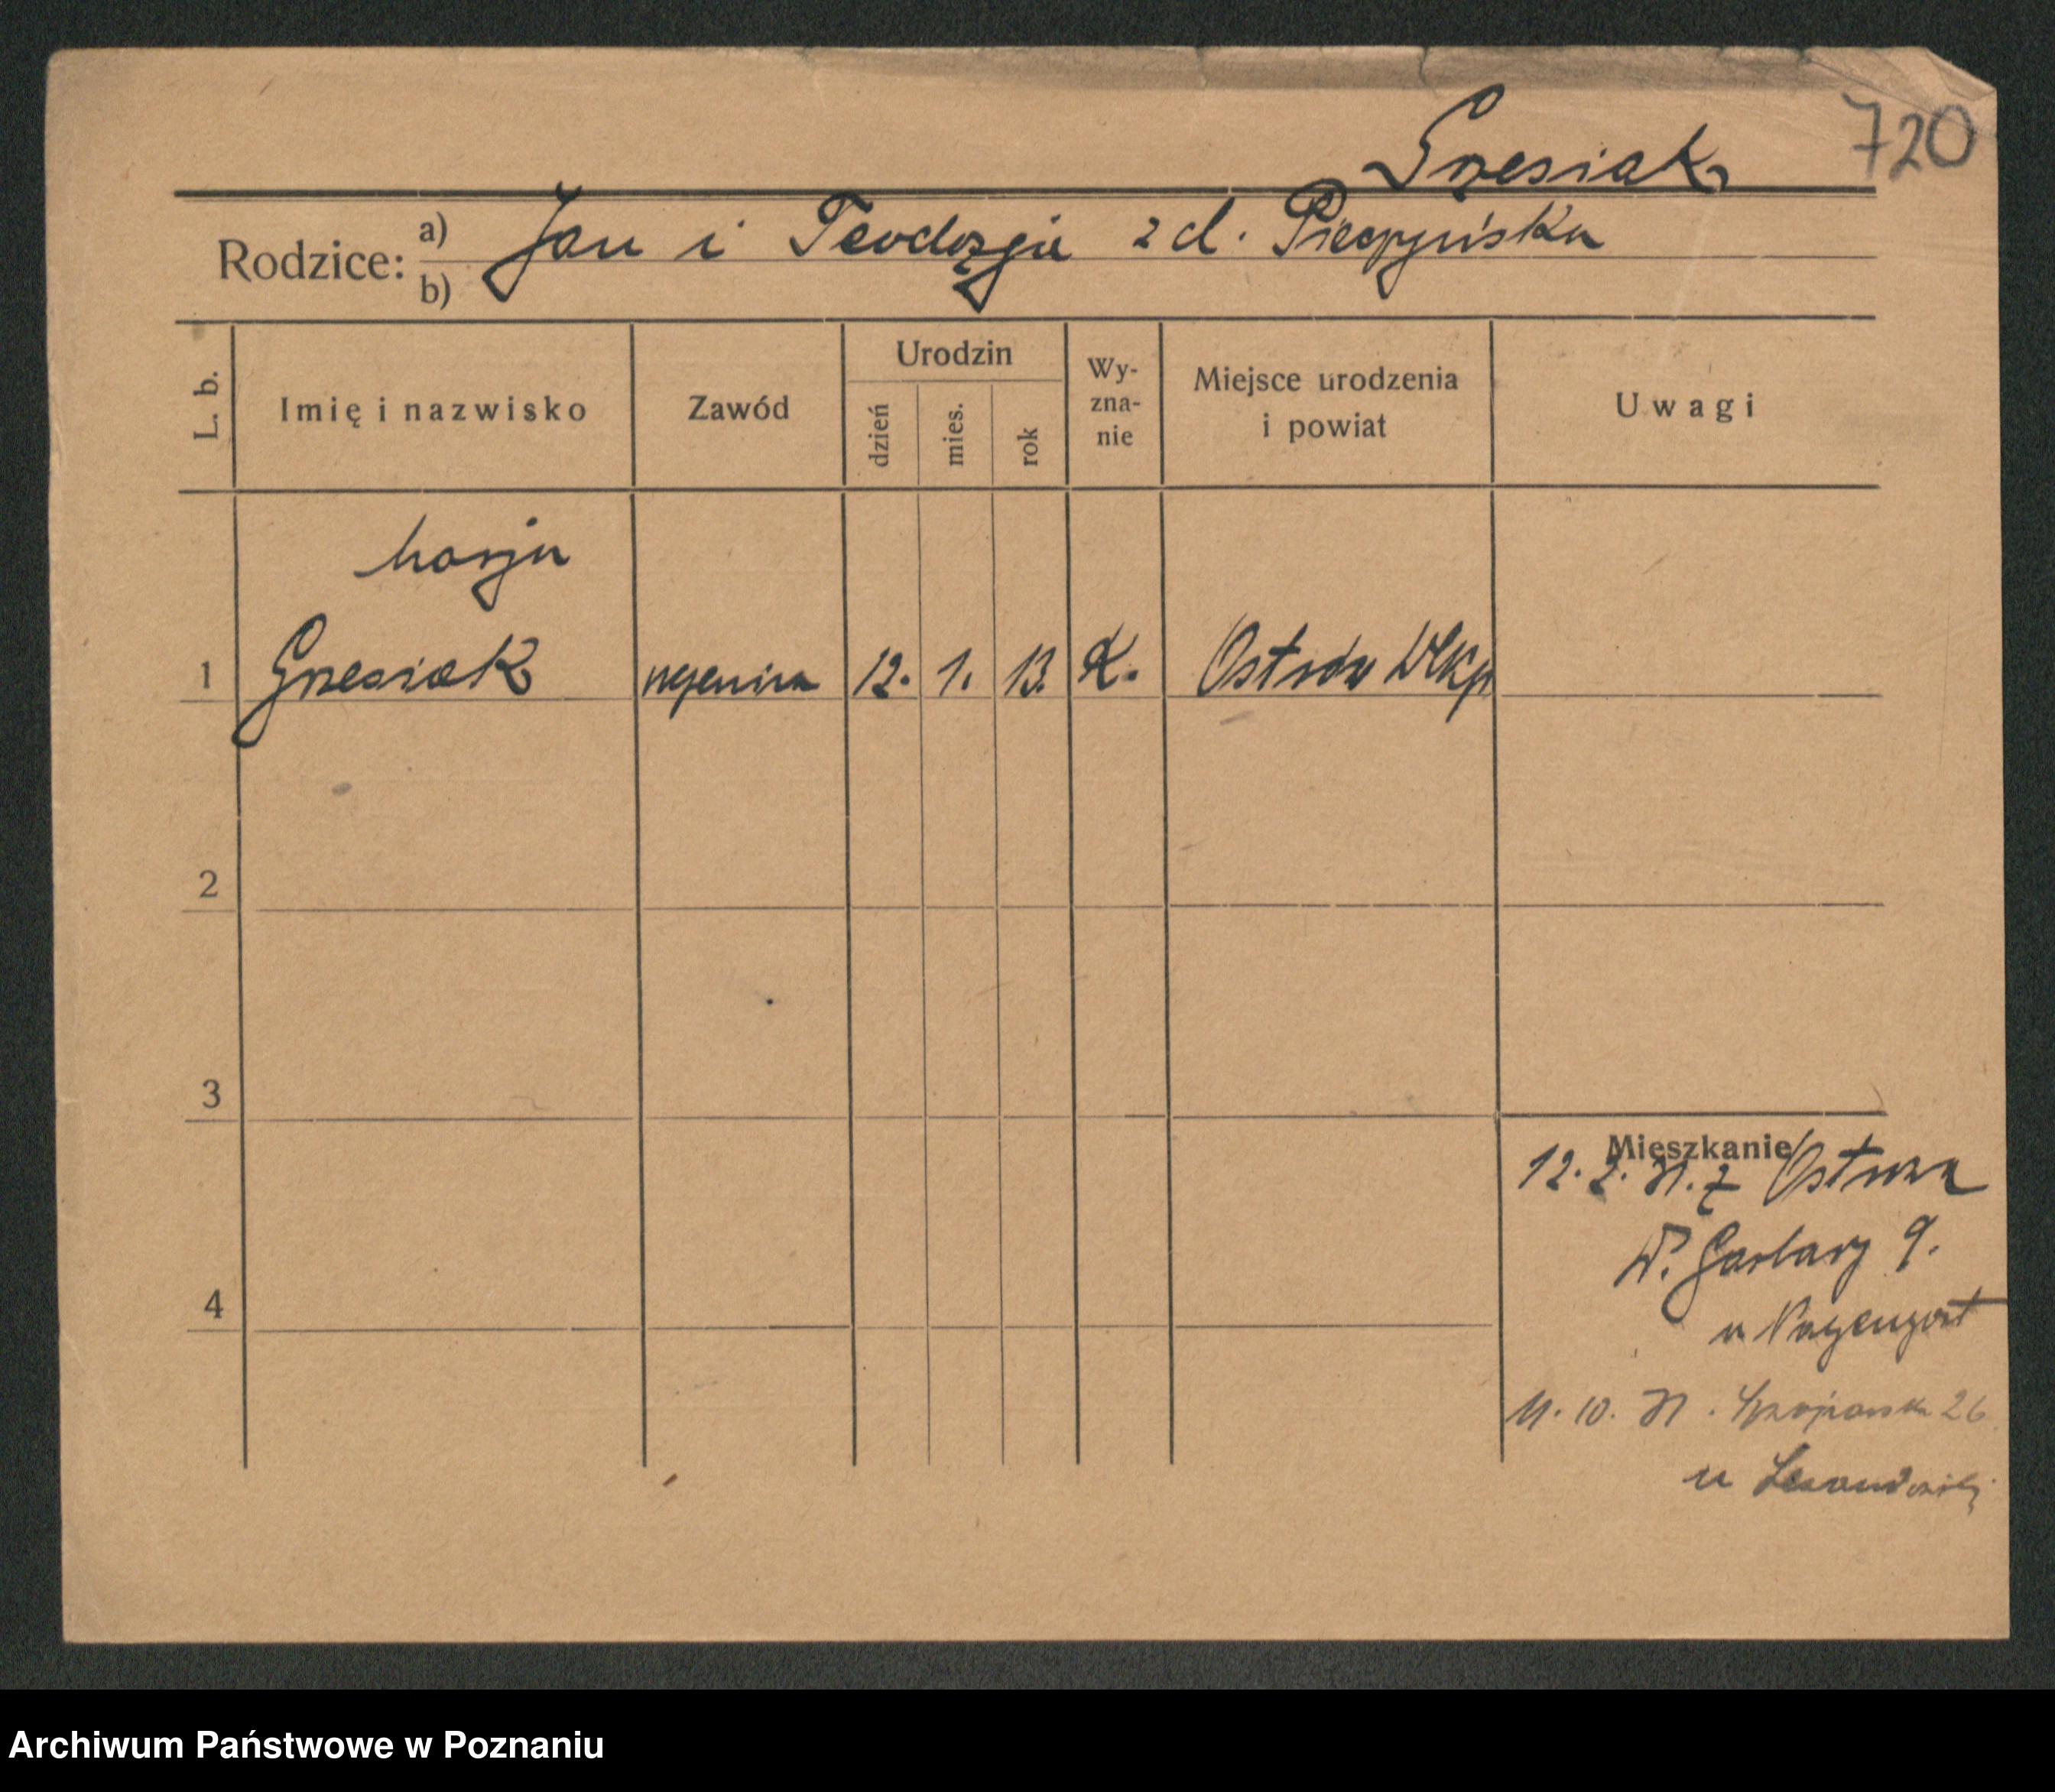 720
Grzesiak
Rodzice: a) b) Jan i Teodozja z d. Pieczyńska
L. b.
Imię i nazwisko
Zawód
Urodzin
dzień
mies.
rok
Wy-
zna-
nie
Miejsce urodzenia
i powiat
Uwagi
Marja
1 Grzesiak uczennica 12. 1. 13. K. Ostrów Wlkp
2
3
4
Mieszkanie
12. 2. 31. z Ostrowa
W. Garbary 9.
u
11. 10. 31. 26
u
Archiwum Państwowe w Poznaniu